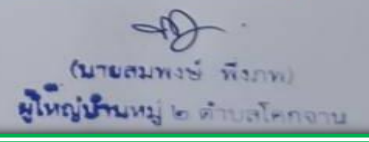 (นายสมพงษ์ พึงภพ)
ผู้ใหญ่บ้านหมู่ ๒ ตำบลโคกจาน